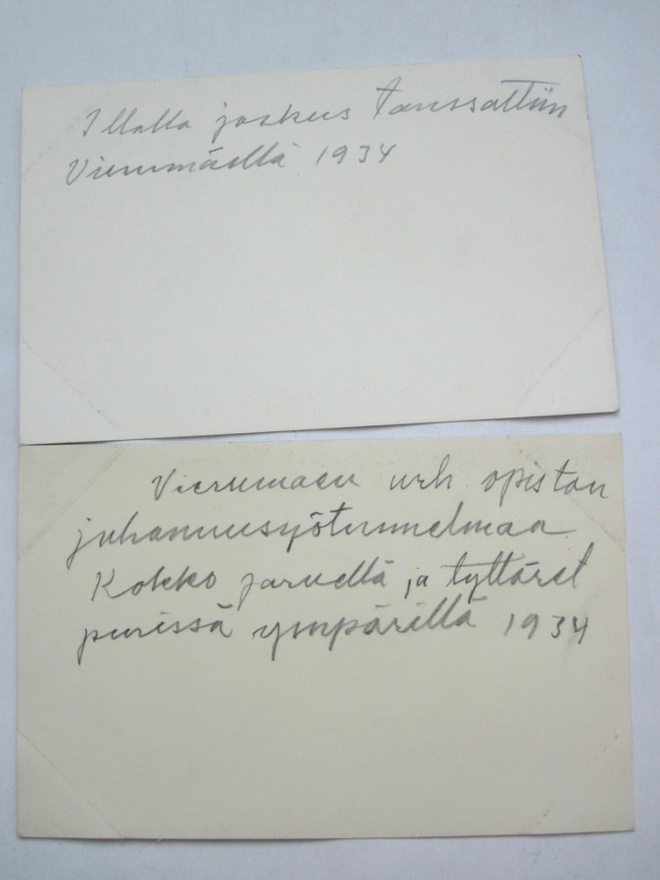 Illalla joskus tanssattiin
Vierumäellä 1934
Vierumaen urh opiston
juhannusyötunnelmaa
Kokko jarvellä ja tyttäret
puissä ympärillä 1934